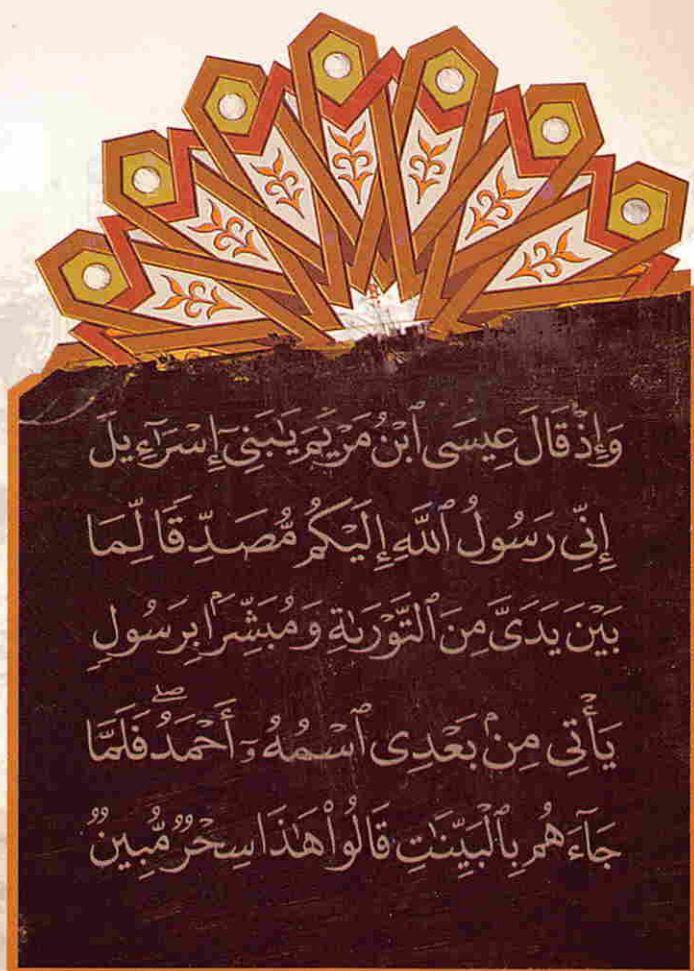 وَإِذْ قَالَ عِيسَى ٱبْنُ مَرْيَمَ يَـٰبَنِىٓ إِسْرَٰٓءِيلَ
إِنِّى رَسُولُ ٱللَّهِ إِلَيْكُم مُّصَدِّقًا لِّمَا
بَيْنَ يَدَىَّ مِنَ ٱلتَّوْرَىٰةِ وَمُبَشِّرًۢا بِرَسُولٍ
يَأْتِى مِنۢ بَعْدِى ٱسْمُهُۥٓ أَحْمَدُ ۖ فَلَمَّا
جَآءَهُم بِٱلْبَيِّنَـٰتِ قَالُوا۟ هَـٰذَا سِحْرٌ مُّبِينٌ